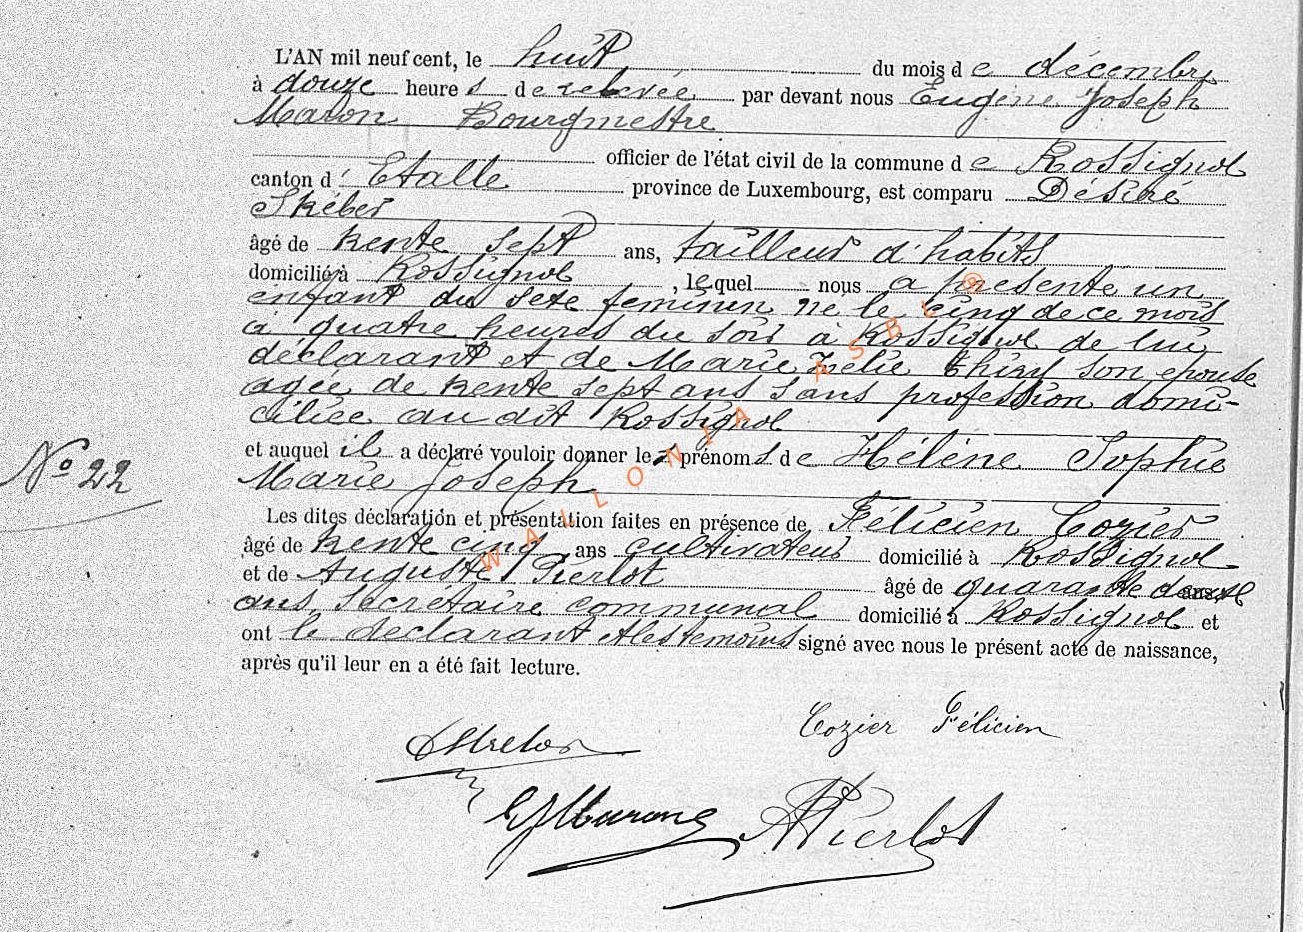 L'AN mil neuf cent, le huit du mois de décembre
à douze heures de relevée par devant nous Eugène Joseph
Maron Bourgmestre
officier de l'état civil de la commune de Rossignol
canton d'Etalle province de Luxembourg, est comparu Désiré
âgé de trente sept ans, tailleur d'habits
domicilié à Rossignol, lequel nous a présenté un
enfant du sexe féminin né le cinq de ce mois
à quatre heures du soir à Rossignol de lui
déclarant et de Marie Zélie Thiry son épouse
agée de trente sept ans sans profession domi-
ciliée au dit Rossignol
et auquel il a déclaré vouloir donner les prénoms de Hélène Sophie
N° 22
Marie Joseph
Les dites déclaration et présentation faites en présence de Félicien Cozier
âgé de trente cinq ans cultivateur domicilié à Rossignol
et de Auguste Pierlot âgé de quarante
ans, secrétaire communal domicilié à Rossignol et
ont le déclarant et les témoins signé avec nous le présent acte de naissance,
après qu'il leur en a été fait lecture.
Cozier Félicien
EJMaron
APierlot
WALLONIA ASBL ®